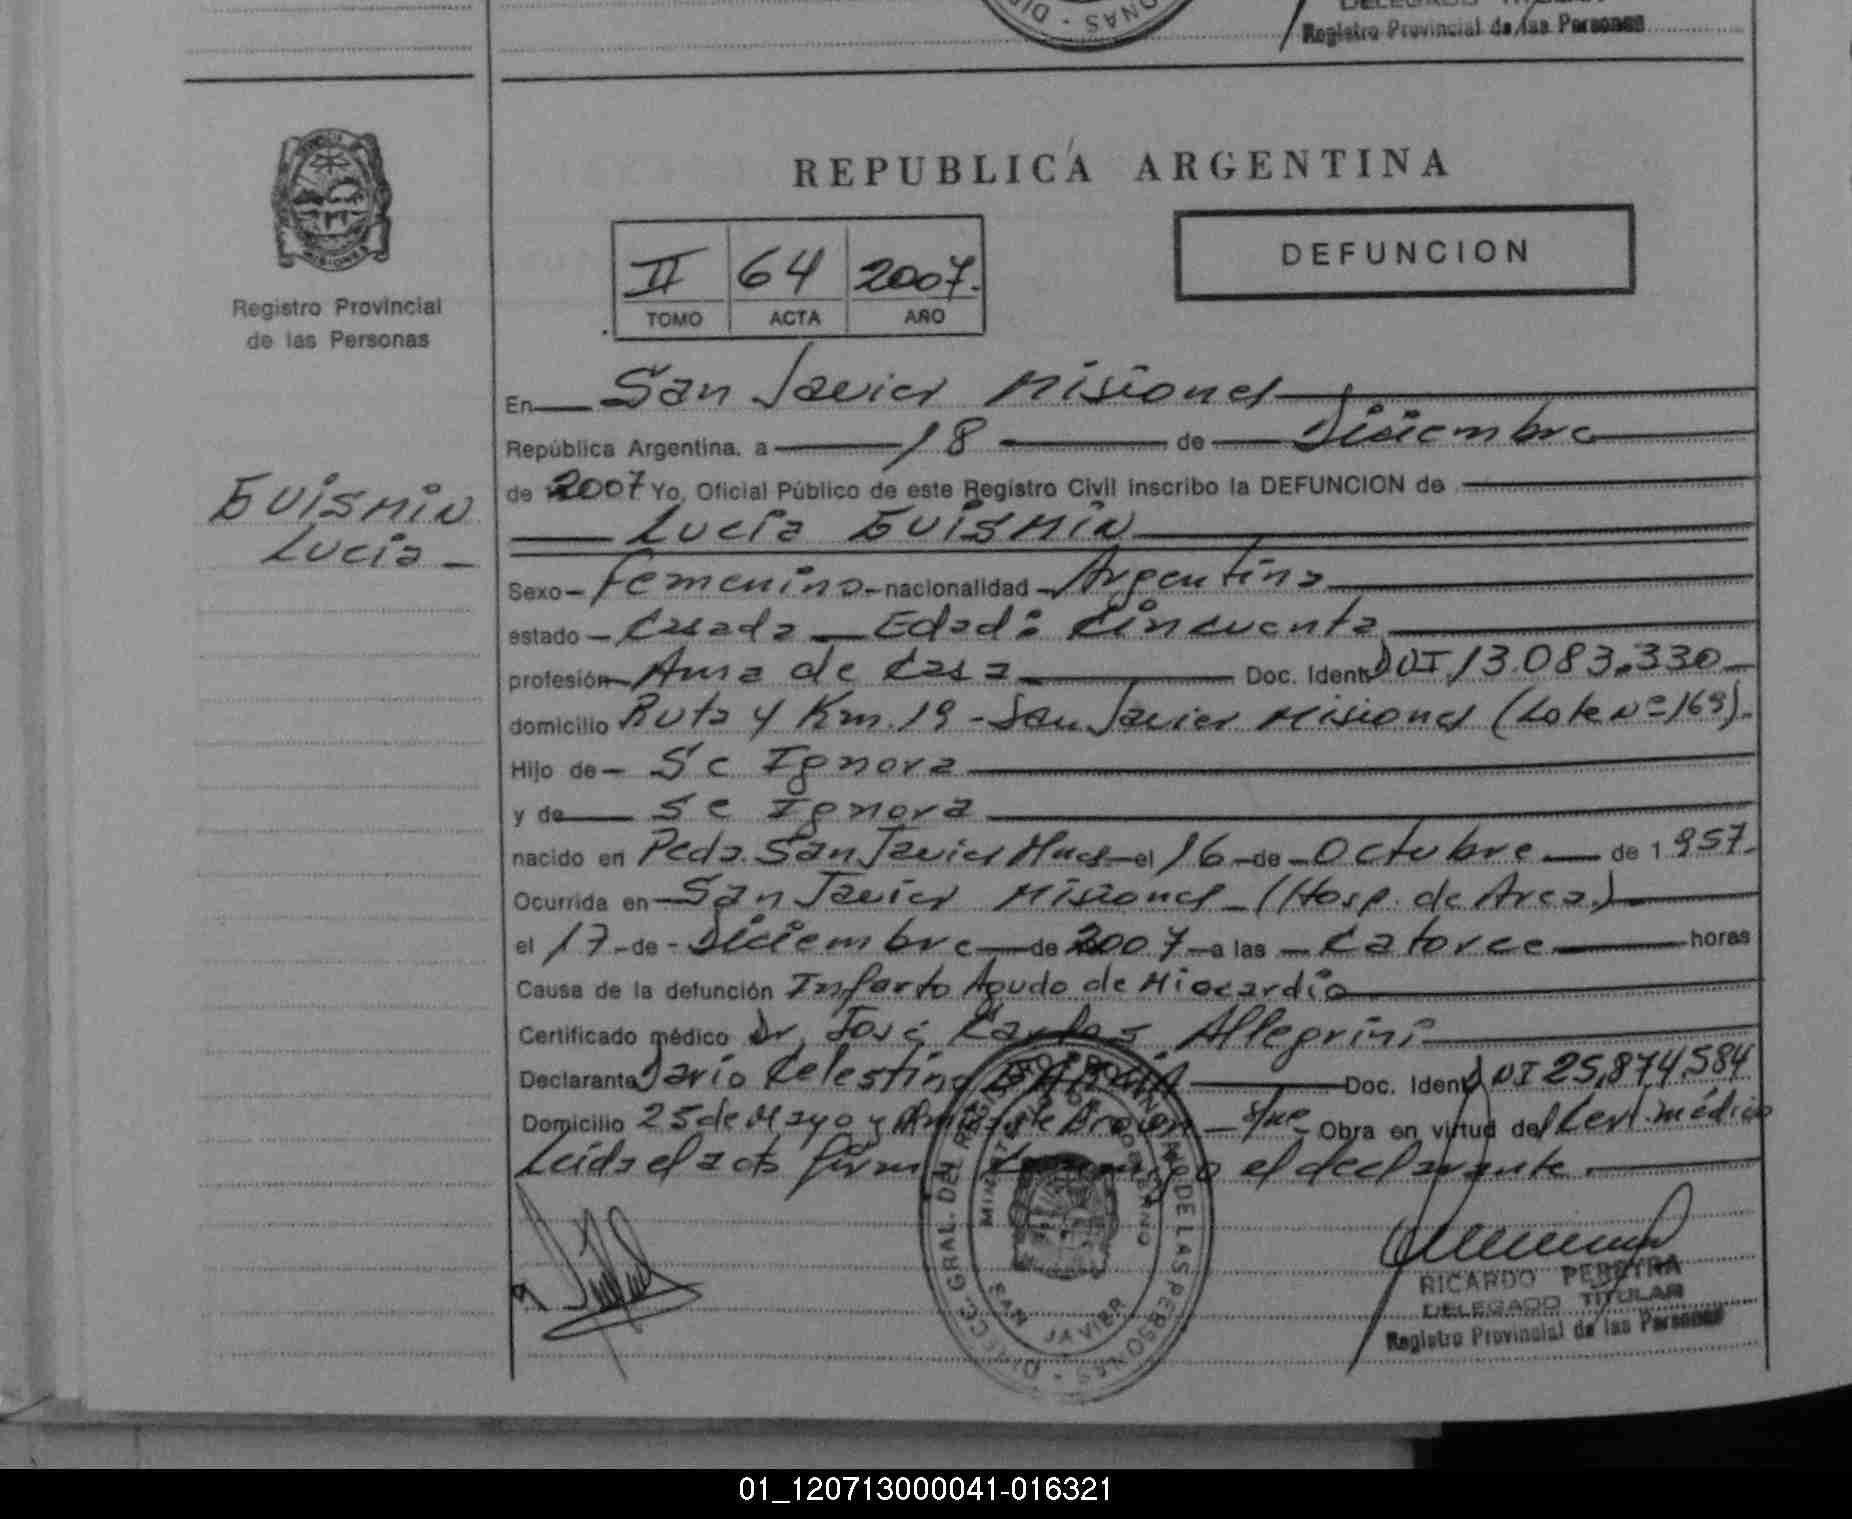 DELEGADO TITULAR
Registro Provincial de las Personas
REPUBLICA ARGENTINA
II 64 2007.
TOMO ACTA AÑO
DEFUNCION
Registro Provincial
de las Personas
En San Javier Misiones
República Argentina, a 18 de Diciembre
de 2007 Yo, Oficial Público de este Registro Civil inscribo la DEFUNCION de
Lucía
Lucía
Sexo - femenino - nacionalidad - Argentina
estado - Casada - Edad: Cincuenta
profesión - Ama de Casa Doc. Ident. DNI 13.083.330
domicilio Ruta 4 Km. 19 - San Javier Misiones (Lote Nº 169).
Hijo de - Se Ignora
y de Se Ignora
nacido en Pcia. San Javier Mnes - el 16 - de - Octubre de 1957.
Ocurrida en San Javier Misiones - (Hosp. de Area.)
el 17 - de - Diciembre de 2007 - a las - Catorce horas
Causa de la defunción Infarto Agudo de Miocardio
Certificado médico Dr. José Carlos Allegrini
Declarante Dario Celestino Doc. Ident. DNI 25.874.584
Domicilio 25 de Mayo y Almirante Brown - Obra en virtud del Cert. médico
Leida el acta firma conmigo el declarante.
DIRECC. GRAL. DEL REGISTRO PROVINCIAL DE LAS PERSONAS
MINISTERIO DE GOBIERNO
SAN JAVIER
RICARDO PEREYRA
DELEGADO TITULAR
Registro Provincial de las Personas
01_120713000041-016321